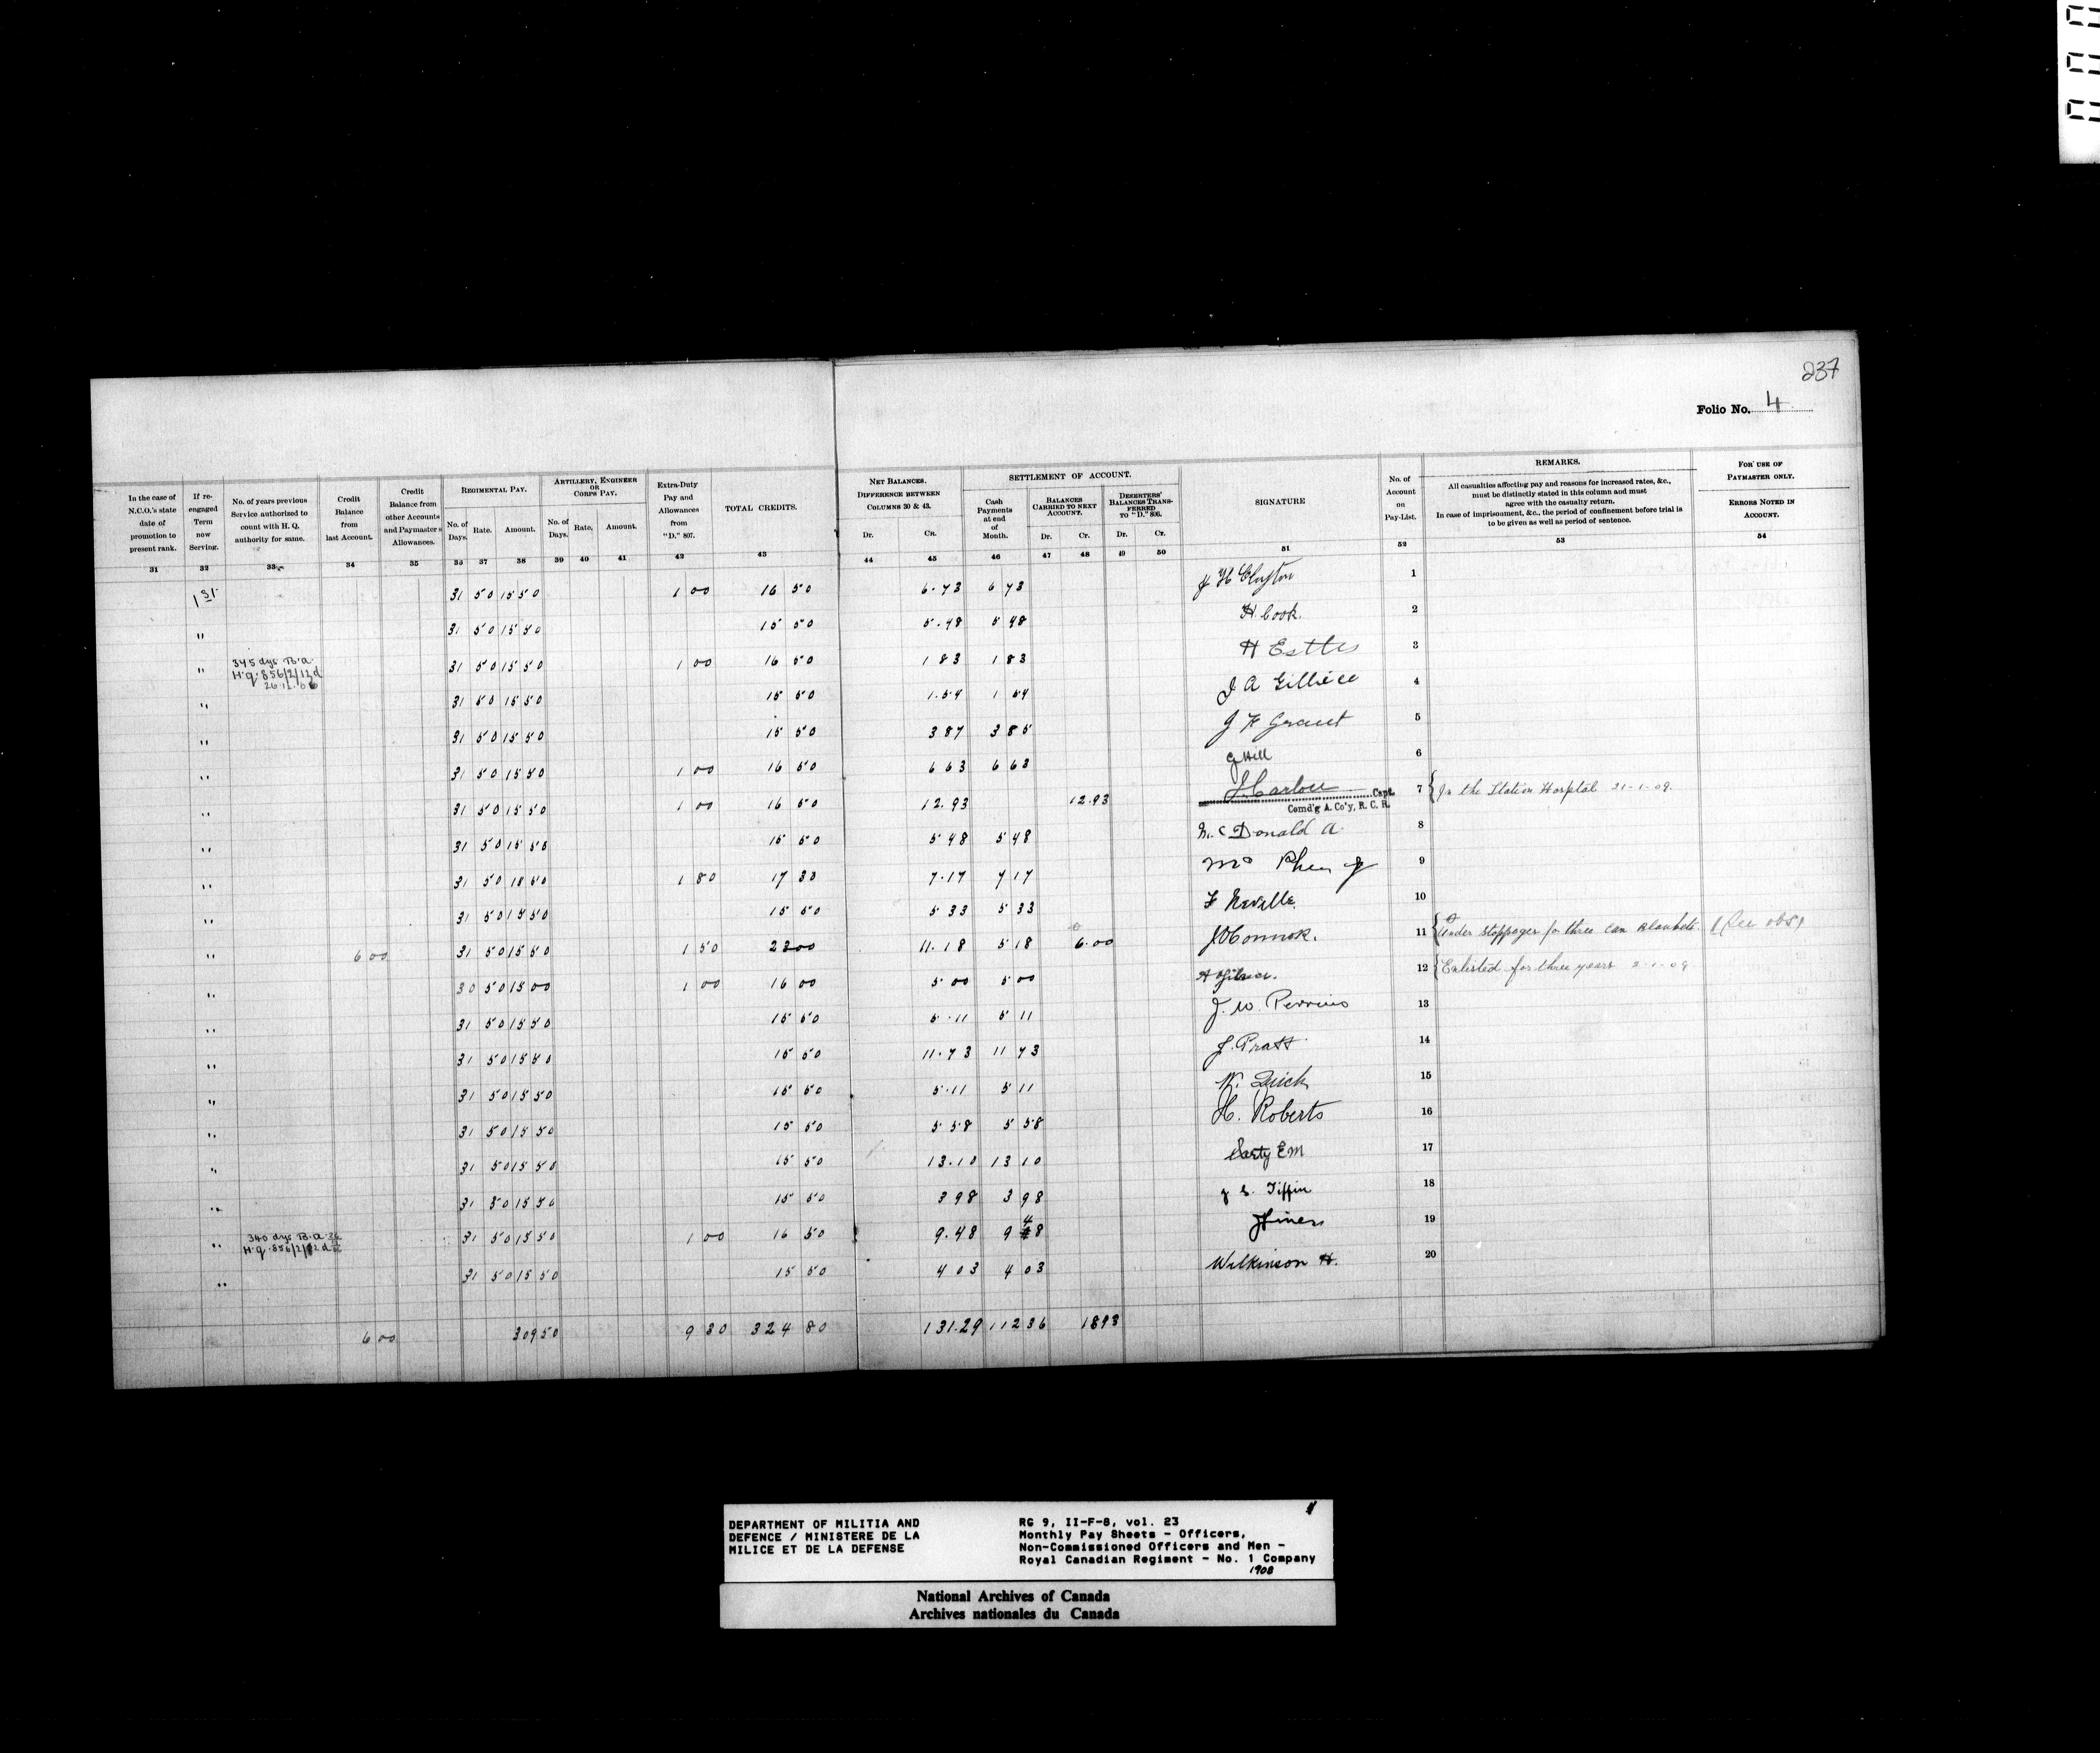 237
Folio No. 4
In the case of N.C.O.'s state date of promotion to present rank.
If re-engaged Term now Serving.
No. of years previous Service authorized to count with H. Q. authority for same.
Credit Balance from last Account.
Credit Balance from other Accounts and Paymasters Allowances.
REGIMENTAL PAY.
No. of Days. Rate. Amount.
ARTILLERY, ENGINEER OR CORPS PAY.
No. of Days. Rate, Amount.
Extra-Duty Pay and Allowances from "D." 807.
TOTAL CREDITS.
NET BALANCES.
DIFFERENCE BETWEEN COLUMNS 30 & 43.
Dr. Cr.
SETTLEMENT OF ACCOUNT.
Cash Payments at end of Month.
BALANCES CARRIED TO NEXT ACCOUNT.
Dr. Cr.
DESERTERS' BALANCES TRANSFERRED TO "D." 806.
Dr. Cr.
SIGNATURE
No. of Account on Pay-List.
REMARKS.
All casualties affecting pay and reasons for increased rates, &c., must be distinctly stated in this column and must agree with the casualty return.
In case of imprisonment, &c., the period of confinement before trial is to be given as well as period of sentence.
FOR USE OF PAYMASTER ONLY.
ERRORS NOTED IN ACCOUNT.
31 32 33 34 35 36 37 38 39 40 41 42 43 44 45 46 47 48 49 50 51 52 53 54
1st 31 50 15 50 1 00 16 50 6.73 6 73 J H Clayton 1
" 31 50 15 50 15 50 5.48 5 48 H Cook. 2
" 345 dys B.a. H.q. 856/2/12d 26.12.06 31 50 15 50 1 00 16 50 1 83 1 83 H Estles 3
" 31 50 15 50 15 50 1.54 1 54 J A Gilliece 4
" 31 50 15 50 15 50 3 87 3 85 J F Grant 5
" 31 50 15 50 1 00 16 50 6 63 6 63 G Hill 6
" 31 50 15 50 1 00 16 50 12.93 12.93 Capt. Comd'g A. Co'y, R. C. R. 7 In the Station Hospital 21-1-09.
" 31 50 15 50 15 50 5 48 5 48 McDonald A. 8
" 31 50 15 50 1 80 17 30 7.17 7 17 Mc J 9
" 31 50 15 50 15 50 5 33 5 33 F Neville. 10
" 6 00 31 50 15 50 1 50 23 00 11.18 5 18 6.00 J O'Connor. 11 Under stoppages for three can Blankets. (See obs)
" 30 50 15 00 1 00 16 00 5.00 5 00 A 12 Enlisted for three years 2-1-09
" 31 50 15 50 15 50 5.11 5 11 J. W. Perrins 13
" 31 50 15 50 15 50 11.73 11 73 J. Pratt 14
" 31 50 15 50 15 50 5.11 5 11 W. Quick 15
" 31 50 15 50 15 50 5 58 5 58 H. Roberts 16
" 31 50 15 50 15 50 13.10 13 10 Sarty E M 17
" 31 50 15 50 15 50 3 98 3 98 J S. Tiffin 18
" 340 dys B.a. H.q. 856/2/12d 31 50 15 50 1 00 16 50 9.48 9 48 19
" 31 50 15 50 15 50 4 03 4 03 Wilkinson H. 20
6 00 309 50 9 30 324 80 131.29 112 36 18 93
DEPARTMENT OF MILITIA AND
DEFENCE / MINISTERE DE LA
MILICE ET DE LA DEFENSE
RG 9, II-F-8, vol. 23
Monthly Pay Sheets - Officers,
Non-Commissioned Officers and Men -
Royal Canadian Regiment - No. 1 Company
1908
National Archives of Canada
Archives nationales du Canada